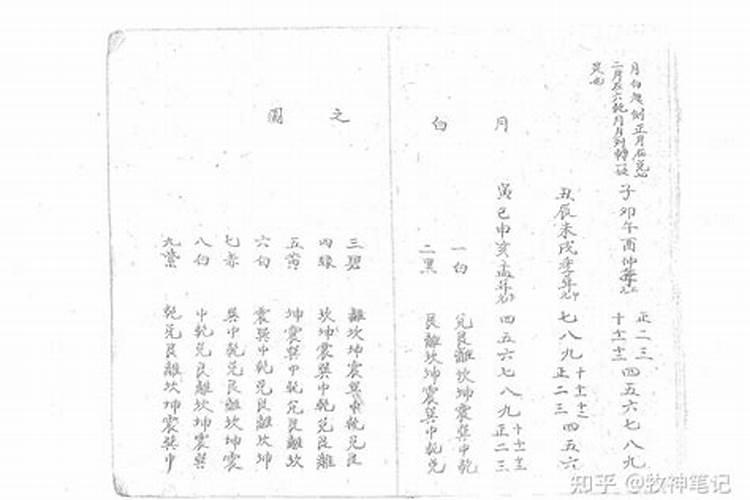 月白起例正月在兑
二月在六乾月月到轉一
是也
子卯午酉仲年 正二三 十十一十二 四五六七八九
丑辰未戌季年 七八九 十十一十二 正二三 四五六
寅巳申亥孟年 四五六七八九 十十一十二 正二三
月白
一白 兑艮離坎坤震巽中乾
二黑 艮離坎坤震巽中乾兑
文圖
三碧 離坎坤震巽中乾兑艮
四綠 坎坤震巽中乾兑艮離
五黄 坤震巽中乾兑艮離坎
六白 震巽中乾兑艮離坎坤
七赤 巽中乾兑艮離坎坤震
八白 中乾兑艮離坎坤震巽
九紫 乾兑艮離坎坤震巽中
知乎 @牧神笔记